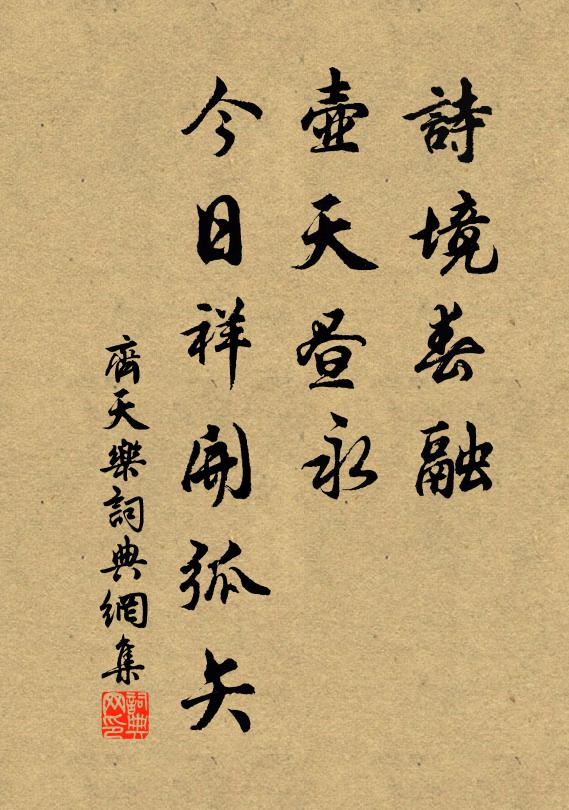 詩境春融
壺天晝永
今日祥開弧矢
齊天樂詞典網集
詞典
网印